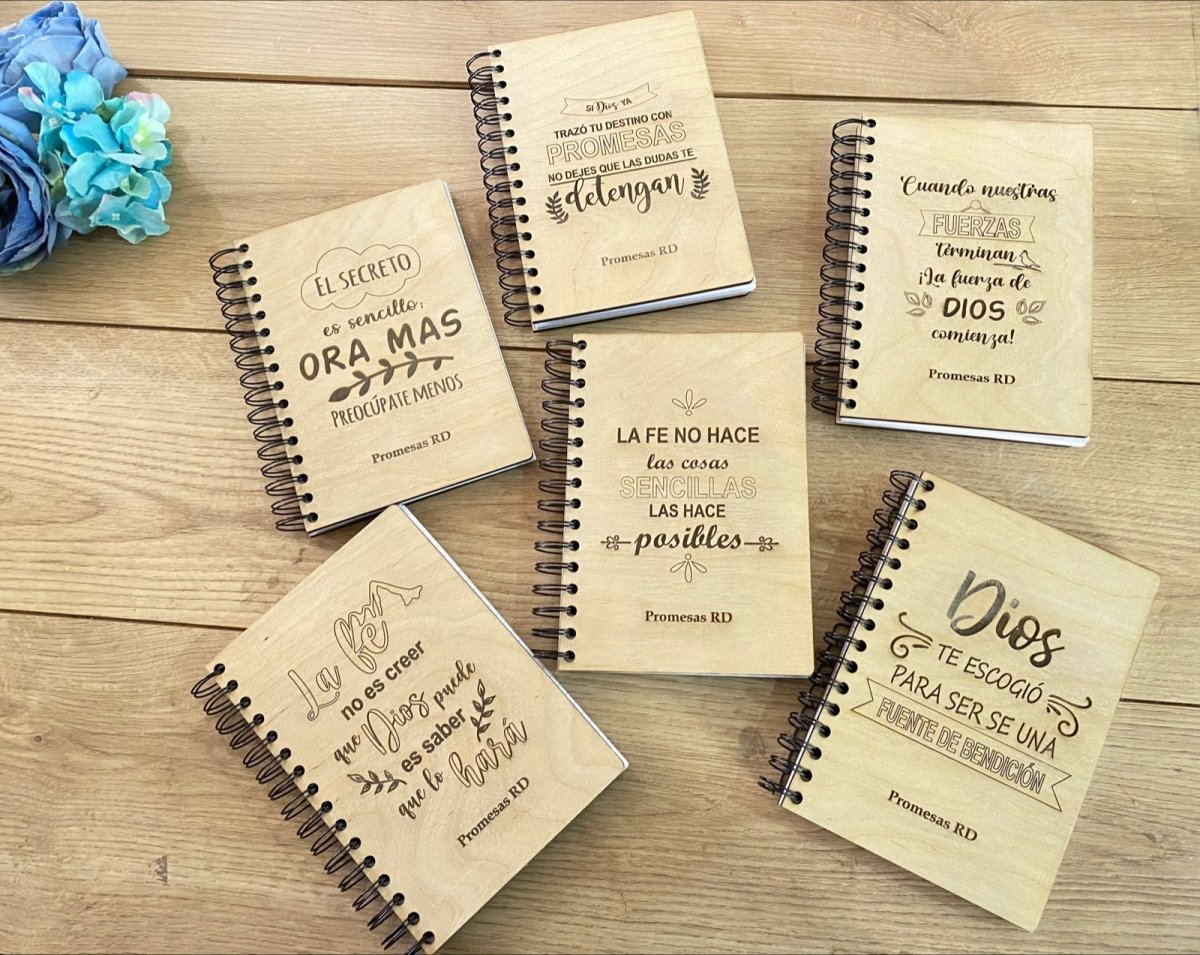 SI Dios YA
TRAZÓ TU DESTINO CON
PROMESAS
NO DEJES QUE LAS DUDAS TE
detengan
Promesas RD
Cuando nuestras
FUERZAS
Terminan
¡La fuerza de
DIOS
comienza!
Promesas RD
EL SECRETO
es sencillo:
ORA MAS
PREOCÚPATE MENOS
Promesas RD
LA FE NO HACE
las cosas
SENCILLAS
LAS HACE
posibles
Promesas RD
La fe
no es creer
que Dios puede
es saber
que lo hará
Promesas RD
Dios
TE ESCOGIÓ
PARA SER SE UNA
FUENTE DE BENDICIÓN
Promesas RD